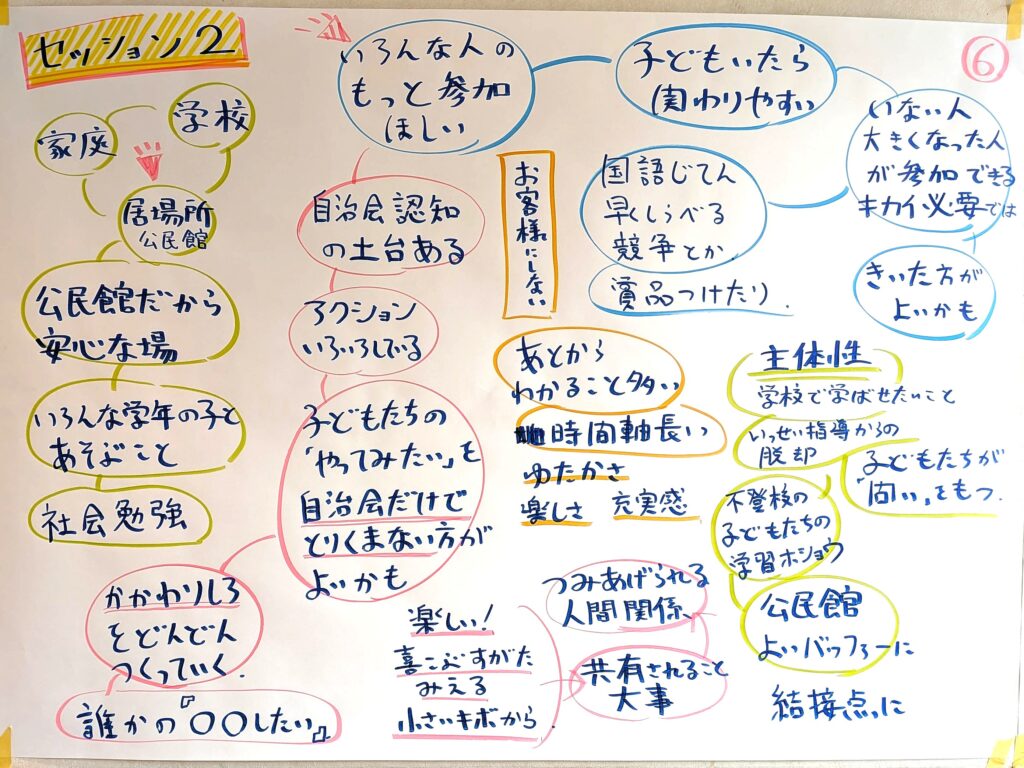 セッション2
⑥
家庭
学校
居場所
公民館
公民館だから
安心な場
いろんな学年の子と
あそぶこと
社会勉強
いろんな人の
もっと参加
ほしい
自治会認知
の土台ある
アクション
いろいろしている
子どもたちの
「やってみたい」を
自治会だけで
とりくまない方が
よいかも
かかわりしろ
をどんどん
つくっていく.
誰かの『〇〇したい』
子どもいたら
関わりやすい
いない人
大きくなった人
が参加できる
キカイ必要では
きいた方が
よいかも
国語じてん
早くしらべる
競争とか.
賞品つけたり.
お客様にしない
あとから
わかること多い
時間軸長い
ゆたかさ
楽しさ 充実感
主体性
学校で学ばせたいこと
いっせい指導からの
脱却
子どもたちが
「問い」をもつ.
不登校の
子どもたちの
学習ホショウ
公民館
よいバッファーに
結接点に
つみあげられる
人間関係
共有されること
大事
楽しい!
喜こぶすがた
みえる
小さいキボから.